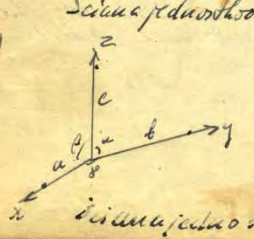 Ściana jednostko
z
c
β α b y
a γ
x
ściana jedno